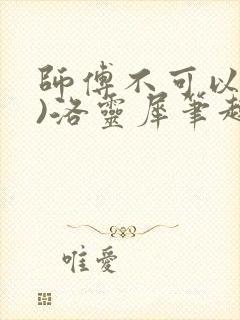 師傅不可以
)洛靈犀筆趣
唯愛